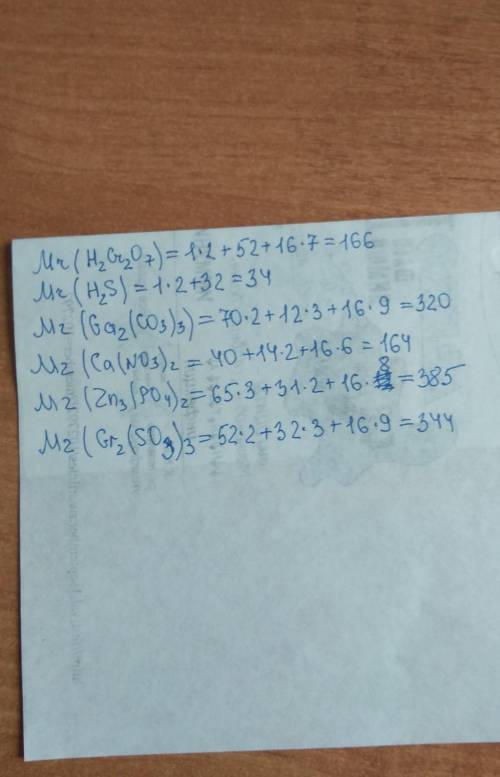 Mr(H₂Cr₂O₇)=1·2+52+16·7=166
Mr(H₂S)=1·2+32=34
Mr(Ga₂(CO₃)₃)=70·2+12·3+16·9=320
Mr(Ca(NO₃)₂=40+14·2+16·6=164
Mr(Zn₃(PO₄)₂=65·3+31·2+16·8=385
Mr(Cr₂(SO₃)₃=52·2+32·3+16·9=344